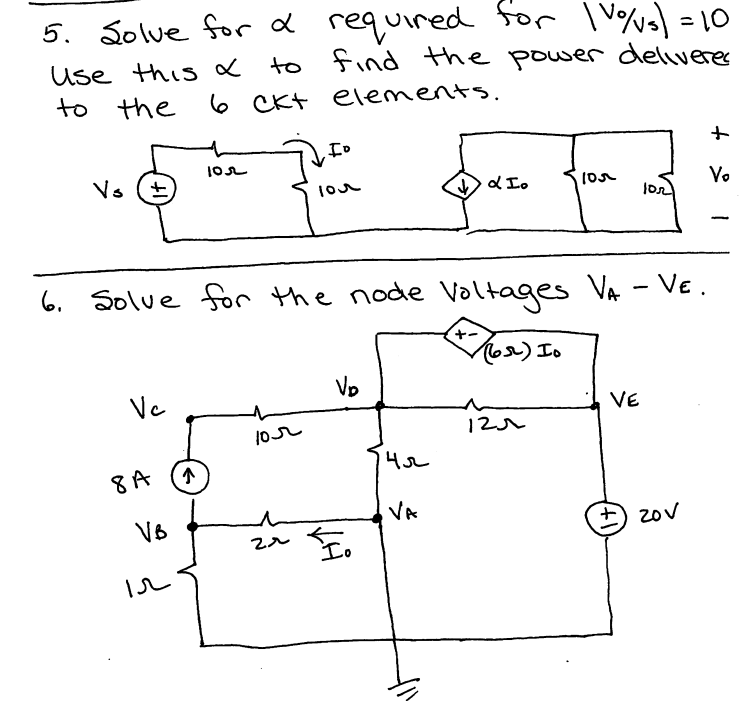 5. Solve for α required for |Vo/Vs| = 10
Use this α to find the power delivered
to the 6 ckt elements.
Io
10Ω
Vs
+
-
10Ω
αIo
10Ω
10Ω
+
Vo
-
6. Solve for the node Voltages VA - VE.
+ -
(6Ω) Io
VC
VD
VE
10Ω
12Ω
8A
4Ω
VB
VA
+
-
20V
2Ω
Io
1Ω